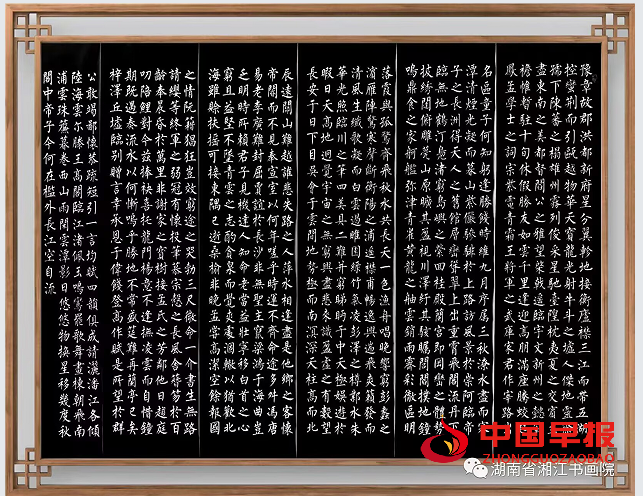 豫章故郡洪都新府星分翼軫地接衡廬襟三江而帶五湖
控蠻荆而引甌越物華天寶龍光射牛斗之墟人傑地靈徐
孺下陳蕃之榻雄州霧列俊采星馳臺隍枕夷夏之交賓主
盡東南之美都督閻公之雅望棨戟遥臨宇文新州之懿範
襜帷暫駐十旬休假勝友如雲千里逢迎高朋滿座騰蛟起
鳳孟學士之詞宗紫電青霜王將軍之武庫家君作宰路出
名區童子何知躬逢勝餞時維九月序屬三秋潦水盡而寒
潭清煙光凝而暮山紫儼驂騑於上路訪風景於崇阿臨帝
子之長洲得天人之舊館層巒聳翠上出重霄飛閣流丹下
臨無地鶴汀凫渚窮島嶼之縈回桂殿蘭宮即岡巒之體勢
披綉闥俯雕甍山原曠其盈視川澤紆其駭矚閭閻撲地鐘
鳴鼎食之家舸艦彌津青雀黄龍之舳雲銷雨霽彩徹區明
落霞與孤鶩齊飛秋水共長天一色漁舟唱晚響窮彭蠡之
濱雁陣驚寒聲斷衡陽之浦遥襟甫暢逸興遄飛爽籟發而
清風生纖歌凝而白雲遏睢園綠竹氣凌彭澤之樽鄴水朱
華光照臨川之筆四美具二難并窮睇眄于中天極娱遊於
暇日天高地迥覺宇宙之無窮興盡悲來識盈虛之有數望
長安于日下目吳會于雲間地勢極而南溟深天柱高而北
辰遠關山難越誰悲失路之人萍水相逢盡是他鄉之客懷
帝閽而不見奉宣室以何年嗟乎時運不齊命途多舛馮唐
易老李廣難封屈賈誼於長沙非無聖主竄梁鴻于海曲豈
乏明時所賴君子見機達人知命老當益壯寧移白首之心
窮且益堅不墜青雲之志酌貪泉而覺爽處涸轍以猶歡北
海雖賒扶摇可接東隅已逝桑榆非晚孟嘗高潔空餘報國
之情阮籍猖狂豈效窮途之哭勃三尺微命一介書生無路
請纓等終軍之弱冠有懷投筆慕宗慤之長風舍簪笏於百
齡奉晨昏於萬里非謝家之寶樹接孟氏之芳鄰他日趨庭
叨陪鯉對今兹捧袂喜托龍門楊意不逢撫凌雲而自惜鐘
期既遇奏流水以何慚嗚乎勝地不常盛筵難再蘭亭已矣
梓澤丘墟臨別贈言幸承恩于偉餞登高作賦是所望於群
公敢竭鄙懷恭疏短引一言均賦四韻俱成請灑潘江各傾
陸海雲爾滕王高閣臨江渚佩玉鳴鸞罷歌舞畫棟朝飛南
浦雲珠簾暮卷西山雨閑雲潭影日悠悠物換星移幾度秋
閣中帝子今何在檻外長江空自流
中国早报
ZHONGGUOZAOBAO
湖南省湘江书画院